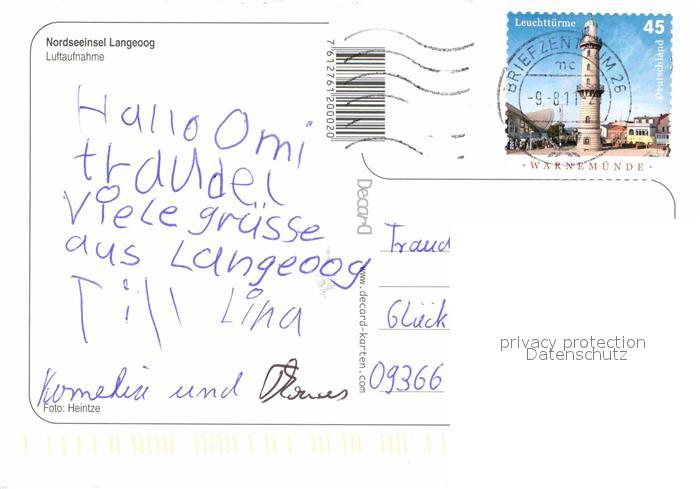 Nordseeinsel Langeoog
Luftaufnahme
Hallo Omi
traudel
Viele grüsse
aus Langeoog
Till Lina
und
Foto: Heintze
7612761200020
Decard
www.decard-karten.com
Leuchttürme 45
Deutschland
BRIEFZENTRUM 26
mc
-9.-8.11
·WARNEMÜNDE·
Traud
Glück
09366
privacy protection
Datenschutz